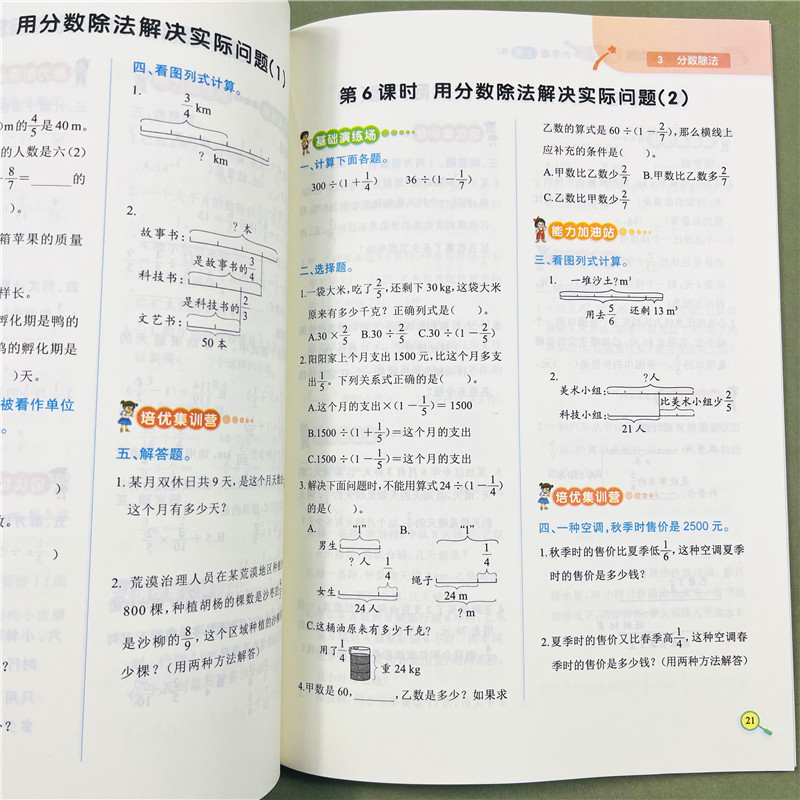 用分数除法解决实际问题(1)
0m的4/5是40m。
的人数是六(2)
8/7=______的
)。
箱苹果的质量
样长。
孵化期是鸭的
鸡的孵化期是
)天。
被看作单位
。
)
)
四、看图列式计算。
1.
3/4 km
? km
2.
? 本
故事书:
是故事书的3/4
科技书:
是科技书的2/3
文艺书:
50本
培优集训营
五、解答题。
1.某月双休日共9天,是这个月天数
这个月有多少天?
2.荒漠治理人员在某荒漠地区种
800棵,种植胡杨的棵数是沙枣的
是沙柳的8/9,这个区域种植的沙
少棵?(用两种方法解答)
3 分数除法
第6课时 用分数除法解决实际问题(2)
基础演练场
一、计算下面各题。
300÷(1+1/4) 36÷(1-1/7)
二、选择题。
1.一袋大米,吃了2/5,还剩下30kg,这袋大米
原来有多少千克?正确列式是( )。
A.30×2/5 B.30÷2/5 C.30÷(1-2/5)
2.阳阳家上个月支出1500元,比这个月多支
出1/5。下列关系式正确的是( )。
A.这个月的支出×(1-1/5)=1500
B.1500÷(1+1/5)=这个月的支出
C.1500÷(1-1/5)=这个月的支出
3.解决下面问题时,不能用算式24÷(1-1/4)
的是( )。
A. “1” B. “1”
男生
? 人
1/4
女生
24人
1/4
绳子
24 m
? m
C.这桶油原来有多少千克?
用了1/4
重24 kg
4.甲数是60,______,乙数是多少?如果求
乙数的算式是60÷(1-2/7),那么横线上
应补充的条件是( )。
A.甲数比乙数少2/7 B.甲数比乙数多2/7
C.乙数比甲数少2/7
能力加油站
三、看图列式计算。
1. 一堆沙土?m³
用去5/6 还剩13 m³
2.
?人
美术小组:
比美术小组少2/5
科技小组:
21人
培优集训营
四、一种空调,秋季时售价是2500元。
1.秋季时的售价比夏季低1/6,这种空调夏季
时的售价是多少钱?
2.夏季时的售价又比春季高1/4,这种空调春
季时的售价是多少钱?(用两种方法解答)
21